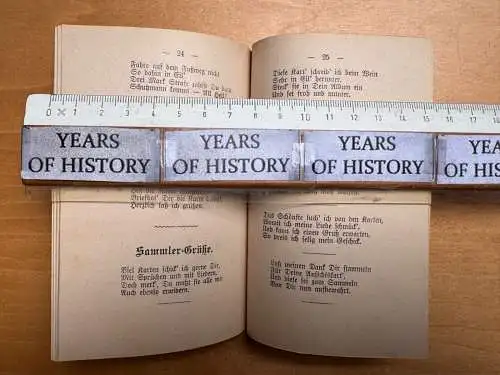 — 24 —
Fahre auf dem Fußweg nicht
So dahin in Eil'
Drei Mark Strafe zahlst Du dann
Schutzmann kommt — All Heil!
— 25 —
Diese Kart' schreib' ich beim Wein
Sehr in Eil' herunter.
Steck' sie in Dein Album ein
Und sei froh und munter.
0 1 2 3 4 5 6 7 8 9 10 11 12 13 14 15 16
YEARS
OF HISTORY
YEARS
OF HISTORY
YEARS
OF HISTORY
YEARS
OF HIS
Der die Karte
Herzlich laß ich grüßen.
Sammler-Grüße.
Viel Karten schick' ich gerne Dir,
Mit Sprüchen und mit Liedern,
Doch merk', Du mußt sie alle mir
Auch ebenso erwidern.
Das Schönste such' ich von den Karten,
Womit ich meine Liebe schmück',
Und kann ich einen Gruß erwarten,
So preis ich selig mein Geschick.
Laß meinen Dank Dir stammeln
Für Deine Ansichtskart',
Und diese sei zum Sammeln
Von Dir nun aufbewahrt.